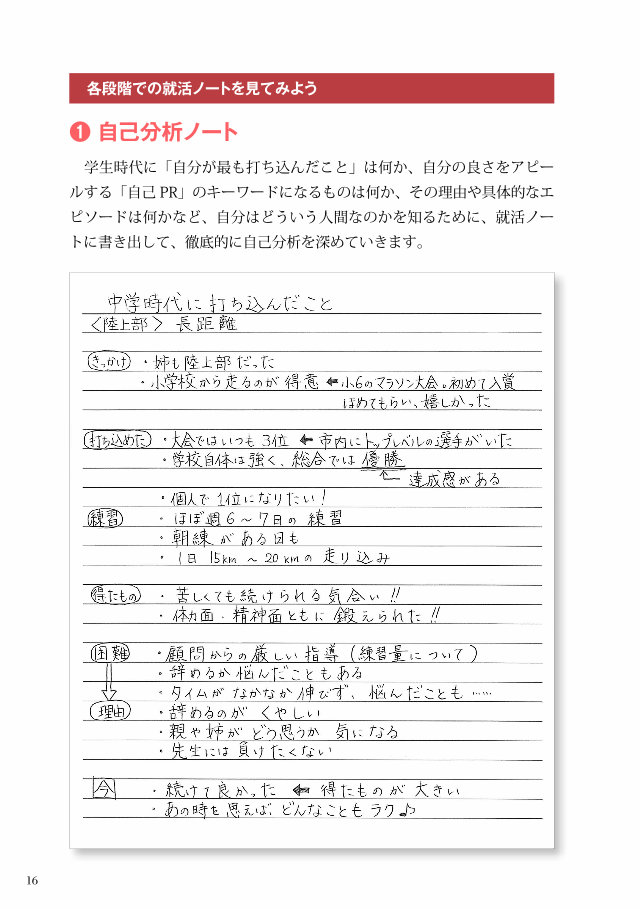 各段階での就活ノートを見てみよう
❶ 自己分析ノート
学生時代に「自分が最も打ち込んだこと」は何か、自分の良さをアピー
ルする「自己PR」のキーワードになるものは何か、その理由や具体的なエ
ピソードは何かなど、自分はどういう人間なのかを知るために、就活ノー
トに書き出して、徹底的に自己分析を深めていきます。
中学時代に打ち込んだこと
〈陸上部〉 長距離
きっかけ ・姉も陸上部だった
・小学校から走るのが得意 ← 小6のマラソン大会。初めて入賞
ほめてもらい、嬉しかった
打ち込めた ・大会ではいつも3位 ← 市内にトップレベルの選手がいた
・学校自体は強く、総合では優勝
← 達成感がある
・個人で1位になりたい!
練習 ・ほぼ週6〜7日の練習
・朝練がある日も
・1日 15km 〜 20kmの走り込み
得たもの ・苦しくても続けられる気合い!!
・体力面・精神面ともに鍛えられた!!
困難 ・顧問からの厳しい指導(練習量について)
・辞めるか悩んだこともある
・タイムがなかなか伸びず、悩んだことも……
理由 ・辞めるのがくやしい
・親や姉がどう思うか気になる
・先生には負けたくない
今 ・続けて良かった ← 得たものが大きい
・あの時を思えば、どんなこともラク♪
16